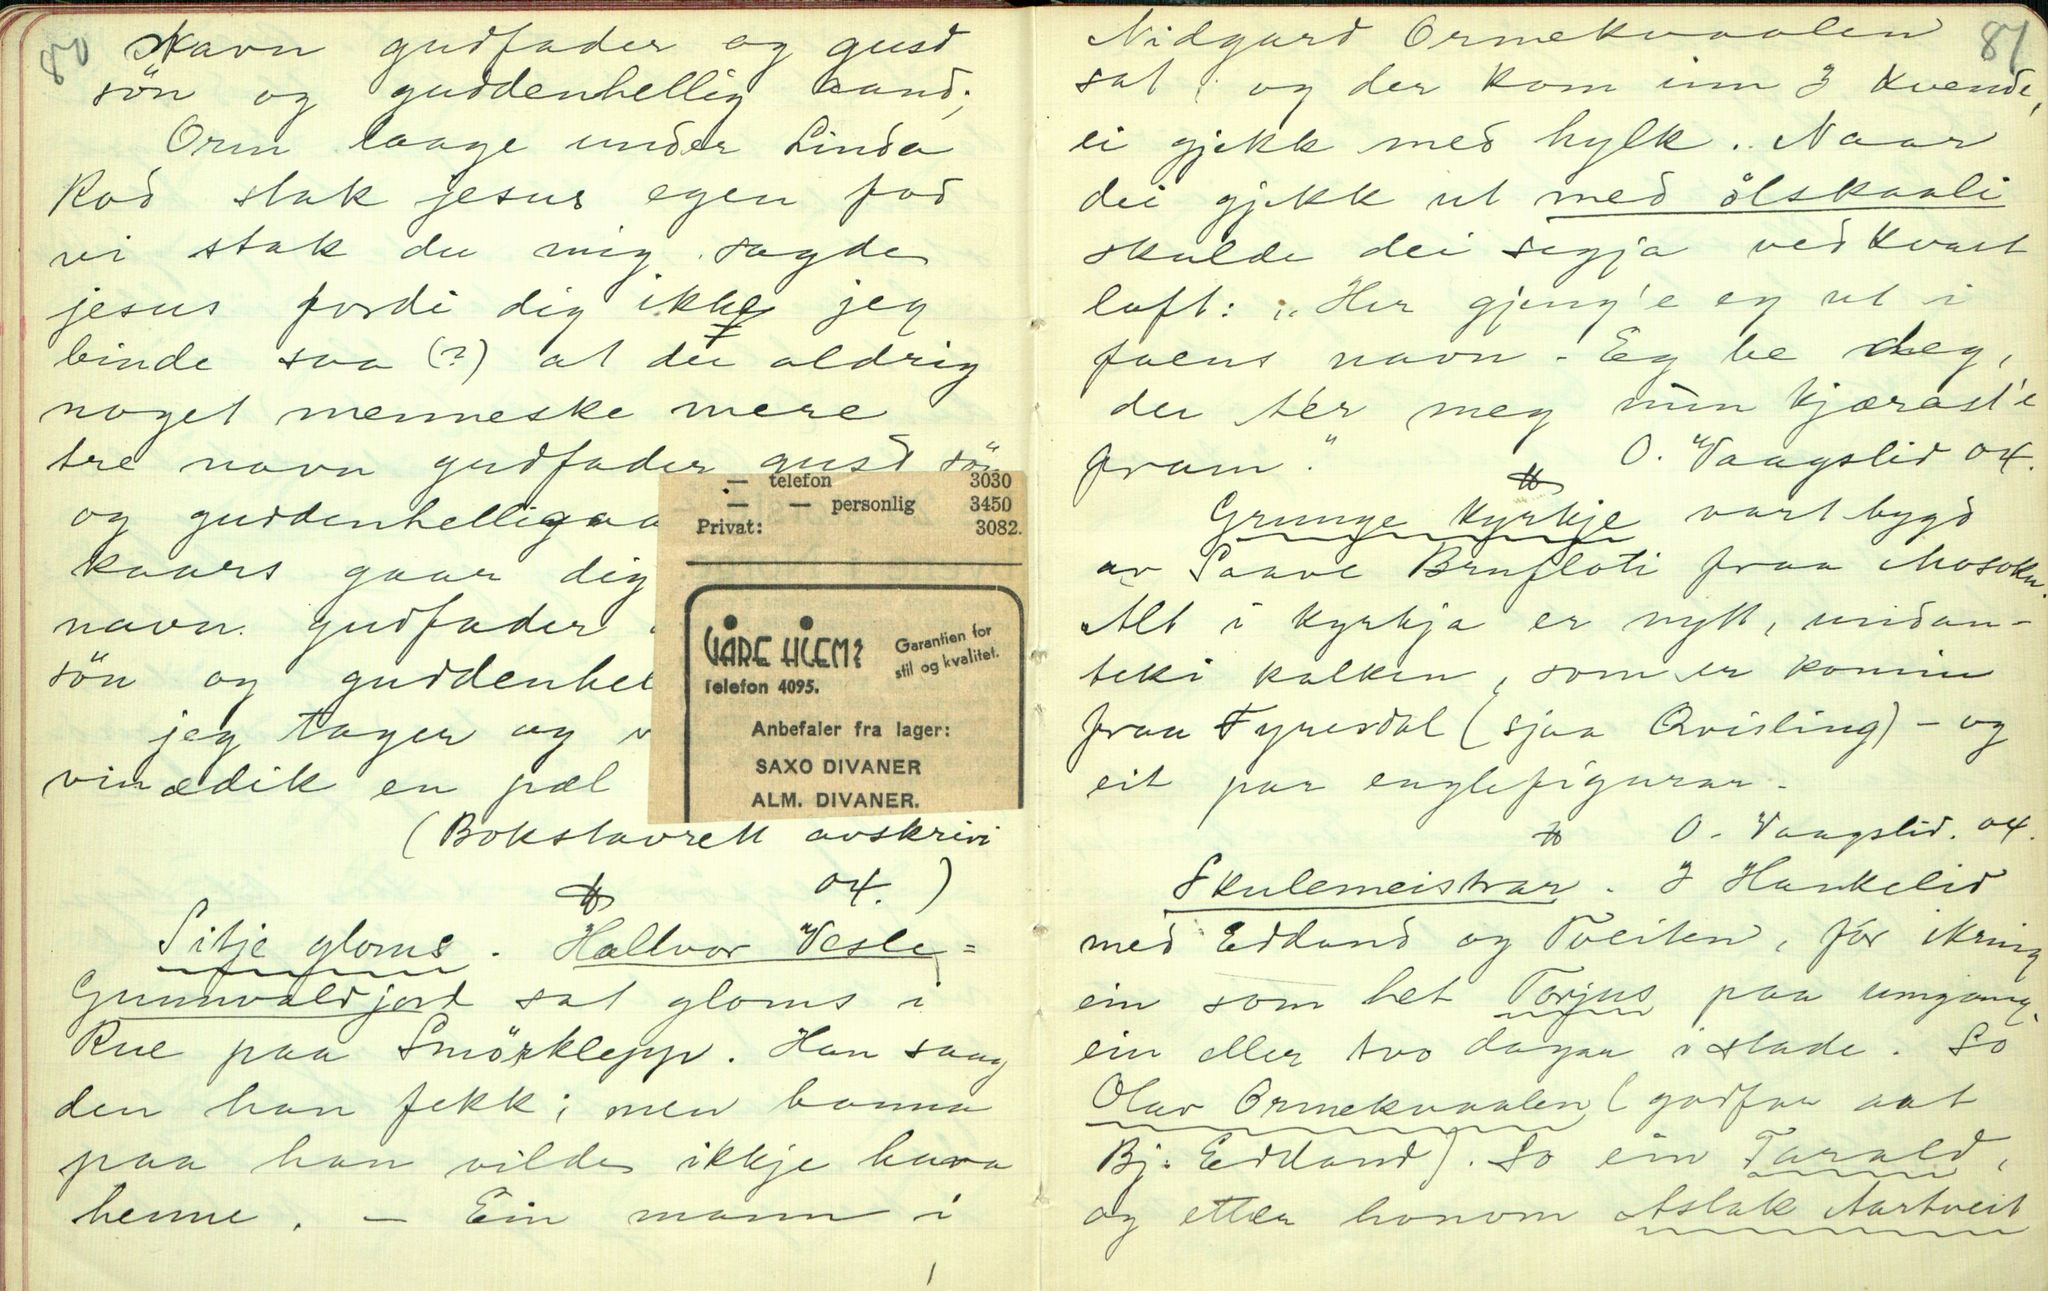 80
Navn gudfader og gusd
sön og guddenhellig aand;
Orm laage under Linda
Rod stak jesus egen fod
vi stak du mig sagde
jesus fordi dig ikke jeg
binde saa (?) at du aldrig
noget menneske mere
tre navn gudfader gusd sön
og guddenhelligaa
kaars gaar dig
navn gudfader
sön og guddenhel
jeg tager og
vinædik en pæl
(Bokstavrett avskrivi
04.)
Sitje gloms. Hallvor Vesle=
Gunnvaldjord sat gloms i
Rue paa Smörklepp. Han saag
den han fekk; men banna
paa han vilde ikkje hava
henne. — Ein mann i
— telefon 3030
— — personlig 3450
Privat: 3082.
VÅRE HJEM?
Garantien for
stil og kvalitet.
Telefon 4095.
Anbefaler fra lager:
SAXO DIVANER
ALM. DIVANER.
81
Nidgard Ormekvaalen
sat og der kom inn 3 kvende,
ei gjekk med hylk. Naar
dei gjekk ut med ölskaali
skulde dei segja ved kvart
loft: „Her gjeng'e eg ut i
faens navn - Eg be deg,
du ter meg min kjærast'e
fram."
O. Vaagslid 04.
Grunge kyrkje vart bygd
av Saave Brufloti fraa Mosokn.
Alt i kyrkja er nytt, undan-
teki kalken, som er komin
fraa Tyresdal (sjaa Qvisling) - og
eit par englefigurar.
O. Vaagslid. 04.
Skulemeistrar. I Haukelid
med Edland og Tveiten, for ikring
ein som het Torjus paa umgang,
ein eller tvo dagar i stade. So
Olav Ormekvaalen (godfar aat
Bj. Edland). So ein Tarald,
og etter honom Aslak Aartveit